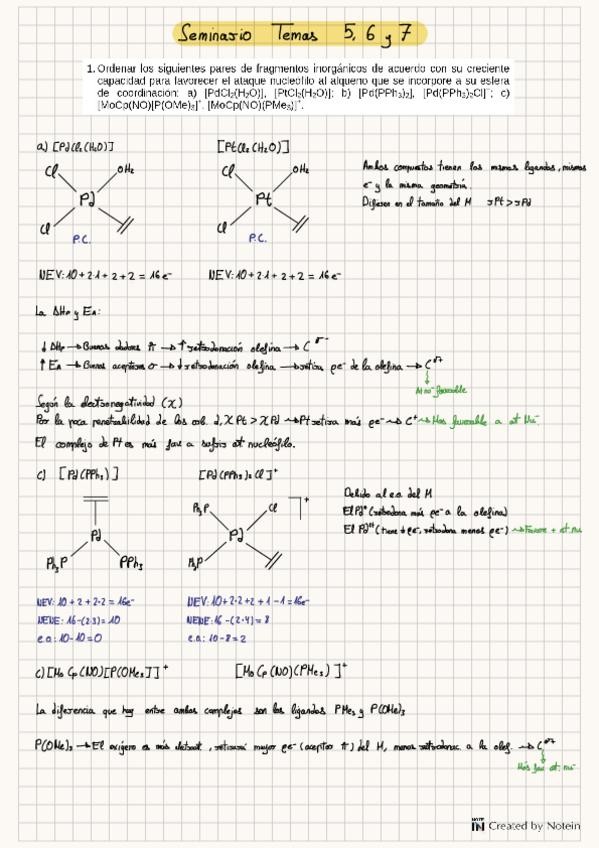 Seminario Temas 5, 6 y 7
1. Ordenar los siguientes pares de fragmentos inorgánicos de acuerdo con su creciente
capacidad para favorecer el ataque nucleófilo al alqueno que se incorpore a su esfera
de coordinación: a) [PdCl₂(H₂O)], [PtCl₂(H₂O)]; b) [Pd(PPh₃)₂], [Pd(PPh₃)₂Cl]⁺; c)
[MoCp(NO)[P(OMe)₃]⁺, [MoCp(NO)(PMe₃)]⁺.
a) [PdCl₂(H₂O)] [PtCl₂(H₂O)]
Cl OH₂ Cl OH₂
Pd Pt
Cl Cl
P.C. P.C.
Ambos compuestos tienen los mismos ligandos, mismos
e⁻ y la misma geometría.
Difieren en el tamaño del M → Pt > Pd
NEV: 10 + 2·1 + 2 + 2 = 16 e⁻ NEV: 10 + 2·1 + 2 + 2 = 16 e⁻
La ΔHp y EA:
↓ ΔHp → Buenos dadores π → ↑ retrodonación olefina → C δ⁻
↑ EA → Buenos aceptores σ → ↓ retrodonación olefina → retira ρe⁻ de la olefina → C δ⁺
At nu⁻ favorable
Según la electronegatividad (χ)
Por la poca penetrabilidad de los orb. d, χ Pt > χ Pd → Pt retira más ρe⁻ → C⁺ → Mas favorable a at Nu⁻
El complejo de Pt es más fav a sufrir at nucleófilo.
c) [Pd(PPh₃)] [Pd(PPh₃)₂Cl]⁺
Pd
Ph₃P PPh₃
Ph₃P Cl +
Pd
Ph₃P
Debido al e.o. del M
El Pd⁰ (retrodona más ρe⁻ a la olefina)
El Pd⁺² (tiene ↓ ρe⁻, retrodona menos ρe⁻) → Favore + at. nu
NEV: 10 + 2 + 2·2 = 16e⁻ NEV: 10 + 2·2 + 2 + 1 - 1 = 16e⁻
NENE: 16 - (2·3) = 10 NENE: 16 - (2·4) = 8
e.o: 10 - 10 = 0 e.o: 10 - 8 = 2
c) [Mo Cp (NO)[P(OMe₃]]⁺ [Mo Cp (NO)(PMe₃)]⁺
La diferencia que hay entre ambos complejos son los ligandos PMe₃ y P(OMe)₃
P(OMe)₃ → El oxígeno es más electroat, retirará mayor ρe⁻ (aceptor π) del M, menos retrodonac. a la olef. → C δ⁺
Más fav at. nu⁻
Created by Notein